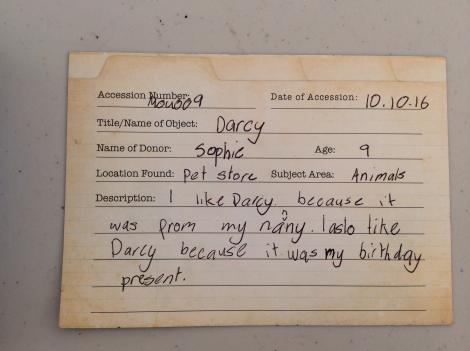 Accession Number: Mou009 Date of Accession: 10.10.16
Title/Name of Object: Darcy
Name of Donor: Sophie Age: 9
Location Found: Pet store Subject Area: Animals
Description: I like Darcy because it
was prom my nanny. I aslo like
Darcy because it was my birthday
present.